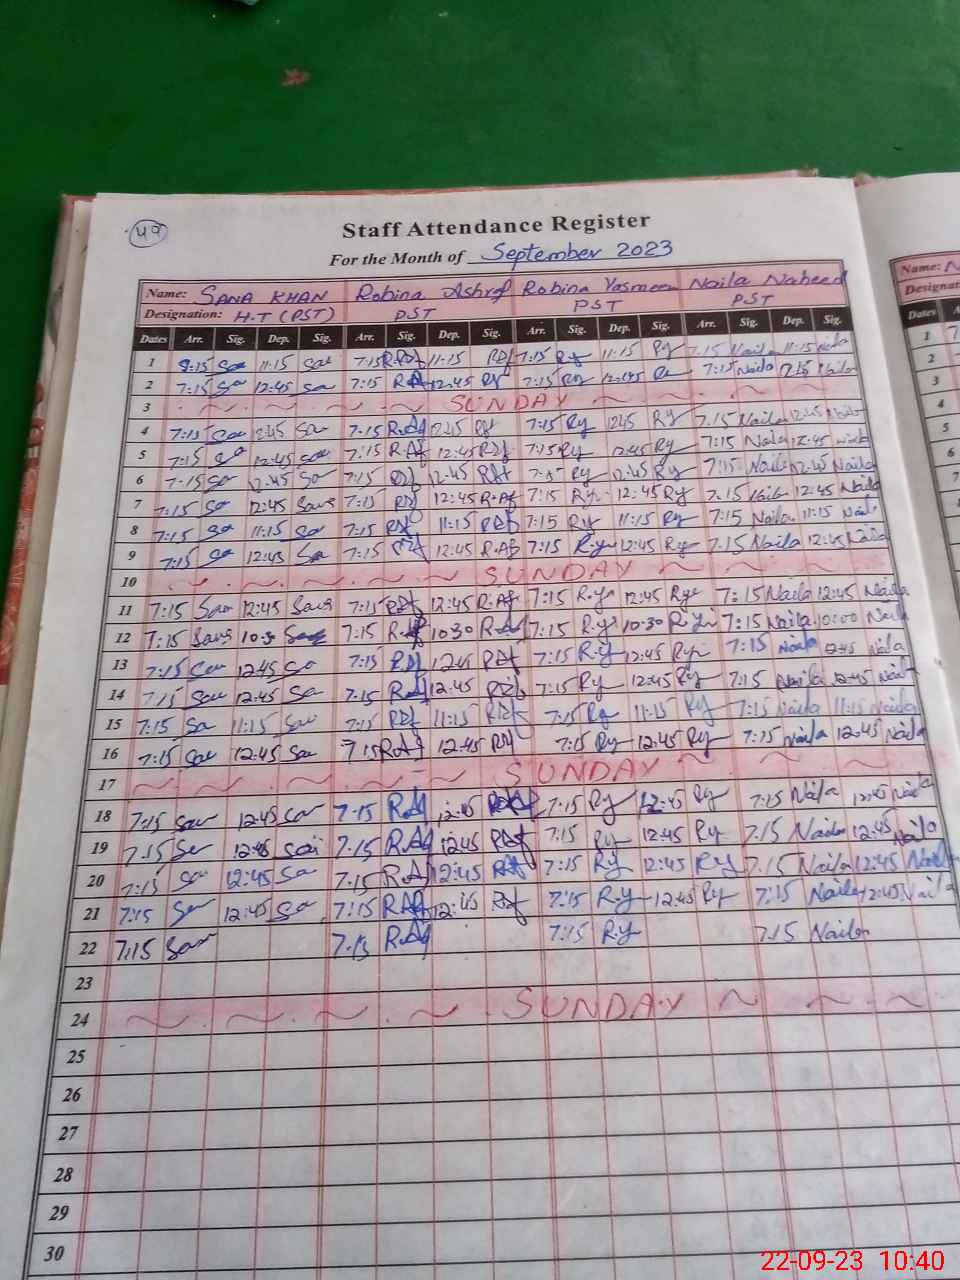 49
Staff Attendance Register
For the Month of September 2023
Name: SANA KHAN Robina Ashraf Robina Yasmeen Naila Naheed
Designation: H.T (PST) PST PST PST
Dates Arr. Sig. Dep. Sig. Arr. Sig. Dep. Sig. Arr. Sig. Dep. Sig. Arr. Sig. Dep. Sig.
1 8:15 Sa 11:15 Sa 7:15 RAf 11:15 RAf 7:15 Ry 11:15 Ry 7:15 Naila 11:15 Naila
2 7:15 Sa 12:45 Sa 7:15 RAf 12:45 RAf 7:15 Ry 12:45 Ry 7:15 Naila Naila
3 SUNDAY
4 7:15 Sa 12:45 Sa 7:15 R.Af 12:45 RAf 7:15 Ry 12:45 Ry 7:15 Naila 12:45 Naila
5 7:15 Sa 12:45 Sa 7:15 R.Af 12:45 RAf 7:15 Ry 12:45 Ry 7:15 Naila 12:45 Naila
6 7:15 Sa 12:45 Sa 7:15 RAf 12:45 RAf 7:15 Ry 12:45 Ry 7:15 Naila 12:45 Naila
7 7:15 Sa 12:45 7:15 RAf 12:45 R.Af 7:15 Ry 12:45 Ry 7:15 Naila 12:45 Naila
8 7:15 Sa 11:15 Sa 7:15 RAf 11:15 RAf 7:15 Ry 11:15 Ry 7:15 Naila 11:15 Naila
9 7:15 Sa 12:45 Sa 7:15 RAf 12:45 R.Af 7:15 R.y 12:45 Ry 7:15 Naila 12:45 Naila
10 SUNDAY
11 7:15 12:45 7:15 RAf 12:45 R.Af 7:15 R.y 12:45 Ry 7:15 Naila 12:45 Naila
12 7:15 10:30 7:15 R.Af 10:30 R.Af 7:15 R.y 10:30 R.y 7:15 Naila 10:00 Naila
13 7:15 Sa 12:45 Sa 7:15 RAf 12:45 RAf 7:15 R.y 12:45 Ry 7:15 Naila 12:45 Naila
14 7:15 Sa 12:45 Sa 7:15 R.Af 12:45 RAf 7:15 Ry 12:45 Ry 7:15 Naila 12:45 Naila
15 7:15 Sa 11:15 Sa 7:15 RAf 11:15 RAf 7:15 Ry 11:15 Ry 7:15 Naila 11:15 Naila
16 7:15 Sa 12:45 Sa 7:15 R.Af 12:45 RAf 7:15 Ry 12:45 Ry 7:15 Naila 12:45 Naila
17 SUNDAY
18 7:15 Sa 12:45 Sa 7:15 R.Af 12:45 RAf 7:15 Ry 12:45 Ry 7:15 Naila 12:45 Naila
19 7:15 Sa 12:45 7:15 R.Af 12:45 RAf 7:15 Ry 12:45 Ry 7:15 Naila 12:45 Naila
20 7:15 Sa 12:45 Sa 7:15 R.Af 12:45 RAf 7:15 Ry 12:45 Ry 7:15 Naila 12:45 Naila
21 7:15 Sa 12:45 Sa 7:15 RAf 12:45 RAf 7:15 R.y 12:45 Ry 7:15 Naila 12:45 Naila
22 7:15 7:15 R.Af 7:15 R.y 7:15 Naila
23
24 SUNDAY
25
26
27
28
29
30
Name: N
Designat
Dates A
1
2
3
4
5
6
7
22-09-23 10:40